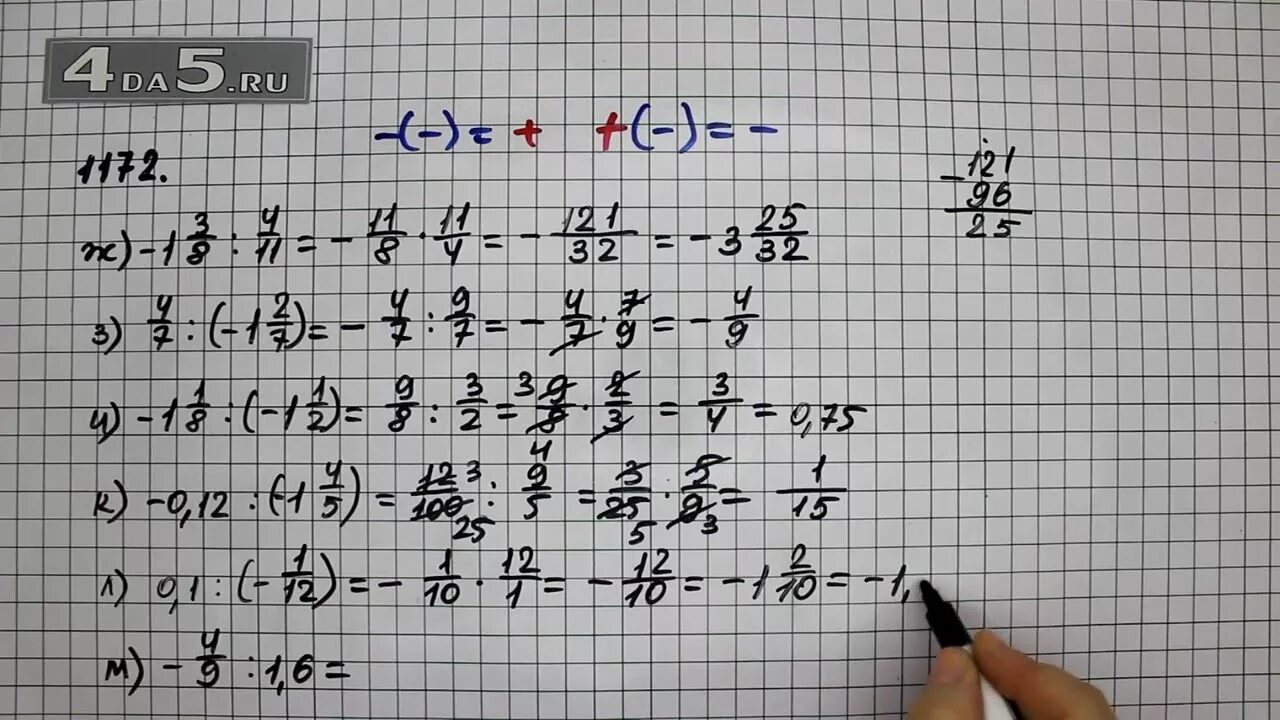 4DA5.RU
-(-) = + +(-) = -
1172.
ж) -1 3/8 : 4/11 = - 11/8 · 11/4 = - 121/32 = -3 25/32
з) 4/7 : (-1 2/7) = - 4/7 : 9/7 = - 4/7 · 7/9 = - 4/9
и) -1 1/8 : (-1 1/2) = 9/8 : 3/2 = 3 9/8 4 · 2/3 = 3/4 = 0,75
к) -0,12 : (-1 4/5) = 12 3/100 25 : 9/5 = 3/25 5 · 5/9 3 = 1/15
л) 0,1 : (- 1/12) = - 1/10 · 12/1 = - 12/10 = -1 2/10 = -1,
м) - 4/9 : 1,6 =
-121
96
25